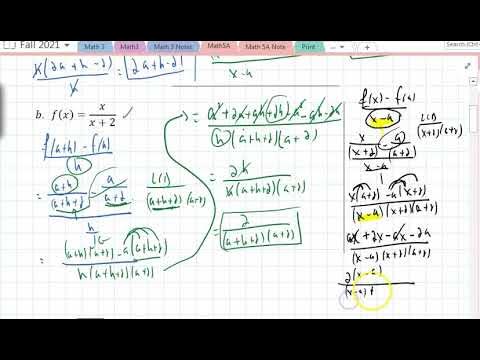 Fall 2021
Math 3
Math3
Math 3 Notes
Math5A
Math 5A Note
Print
Search (Ctrl
b. f(x) = x/(x + 2) ✓
(f(a+h) - f(a))/h
= ((a+h)/(a+h+2) - a/(a+2))/h
LCD (a+h+2)(a+2)
= ((a+h)(a+2) - a(a+h+2))/(h(a+h+2)(a+2))
= (a² + 2a + ah + 2h - a² - ah - 2a)/(h(a+h+2)(a+2))
= 2h/(h(a+h+2)(a+2))
= 2/((a+h+2)(a+2))
x-a
(f(x) - f(a))/(x-a)
LCD (x+2)(a+2)
(x/(x+2) - a/(a+2))/(x-a)
(x(a+2) - a(x+2))/((x-a)(x+2)(a+2))
(ax + 2x - ax - 2a)/((x-a)(x+2)(a+2))
2(x-a)
(x-a)(